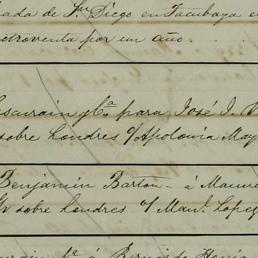 ada de Sn Diego en Tacubaya e
etroventa por un año.
scurain y Ca. para José J.
sobre Londres o/ Apolonia May
Benjamin Barton á Maur
sobre Londres o/ Manl. Lopez
á Bernardo